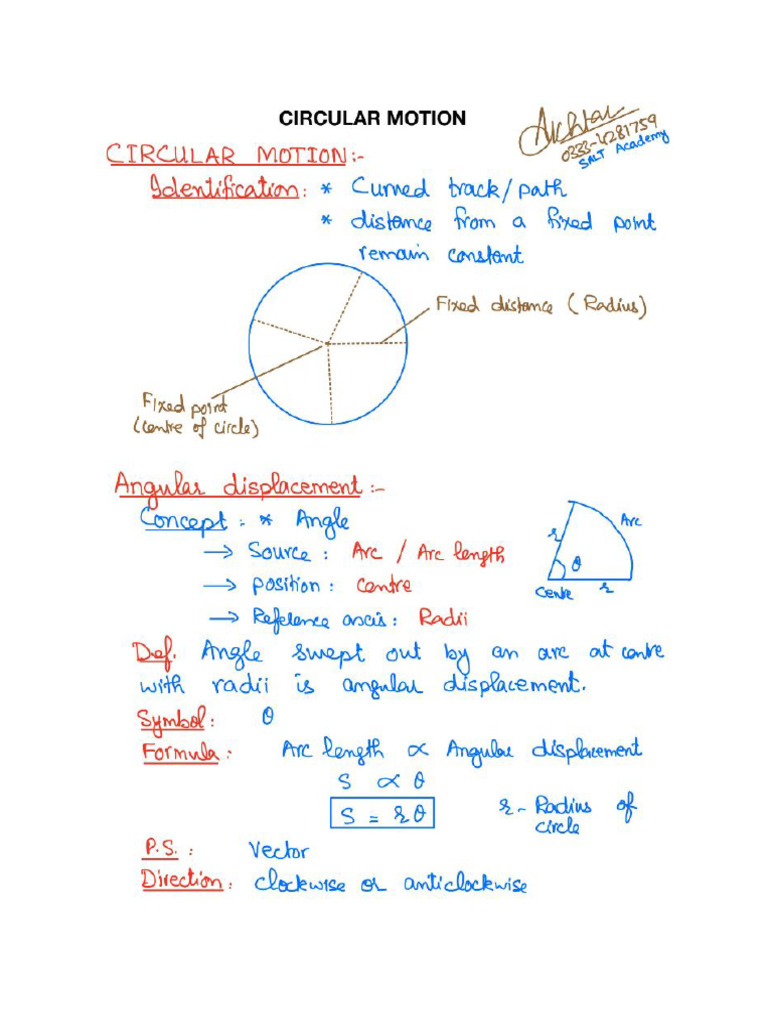 CIRCULAR MOTION
Akhtar
0333-4281759
SALT Academy
CIRCULAR MOTION:-
Identification: * Curved track/path
* distance from a fixed point
remain constant
Fixed distance (Radius)
Fixed point
(centre of circle)
Angular displacement:-
Concept: * Angle
→ Source: Arc / Arc length
→ position: centre
→ Reference axis: Radii
Arc
r
θ
Centre r
Def. Angle swept out by an arc at centre
with radii is angular displacement.
Symbol: θ
Formula: Arc length ∝ Angular displacement
S ∝ θ
S = rθ
r - Radius of
circle
P.S.: Vector
Direction: clockwise or anticlockwise